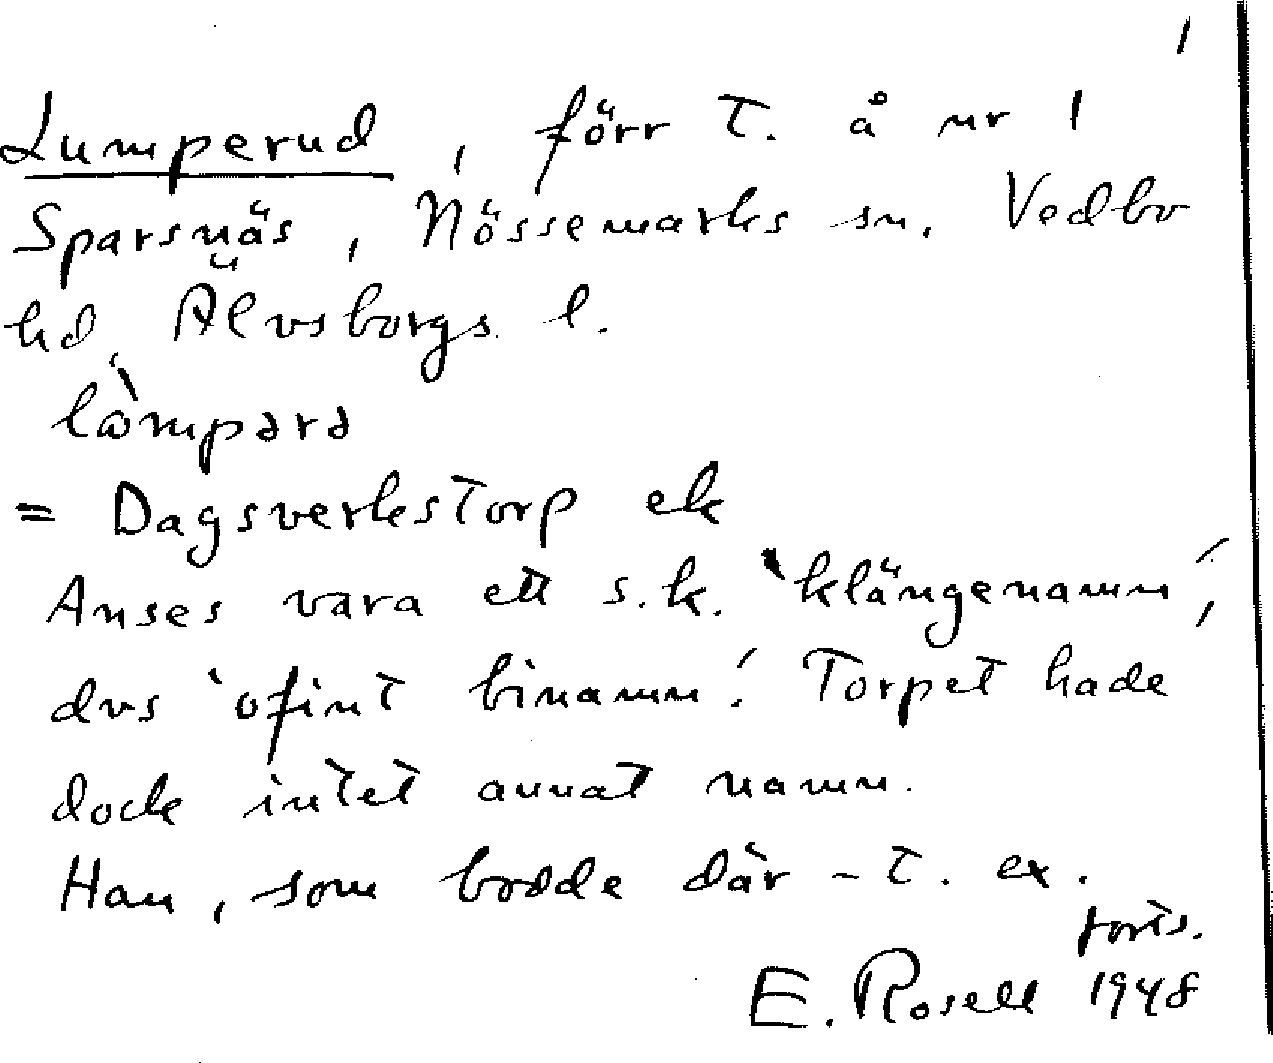 1
Lumperud, förr t. å nr 1
Sparsnäs, Nössemarks sn. Vedbo
hd Älvsborgs l.
lòmpərə
= Dagsverkstorp ek
Anses vara ett s.k. 'klängenamn',
dvs 'ofint binamn'. Torpet hade
dock intet annat namn.
Han, som bodde där - t. ex.
forts.
E. Rosell 1948